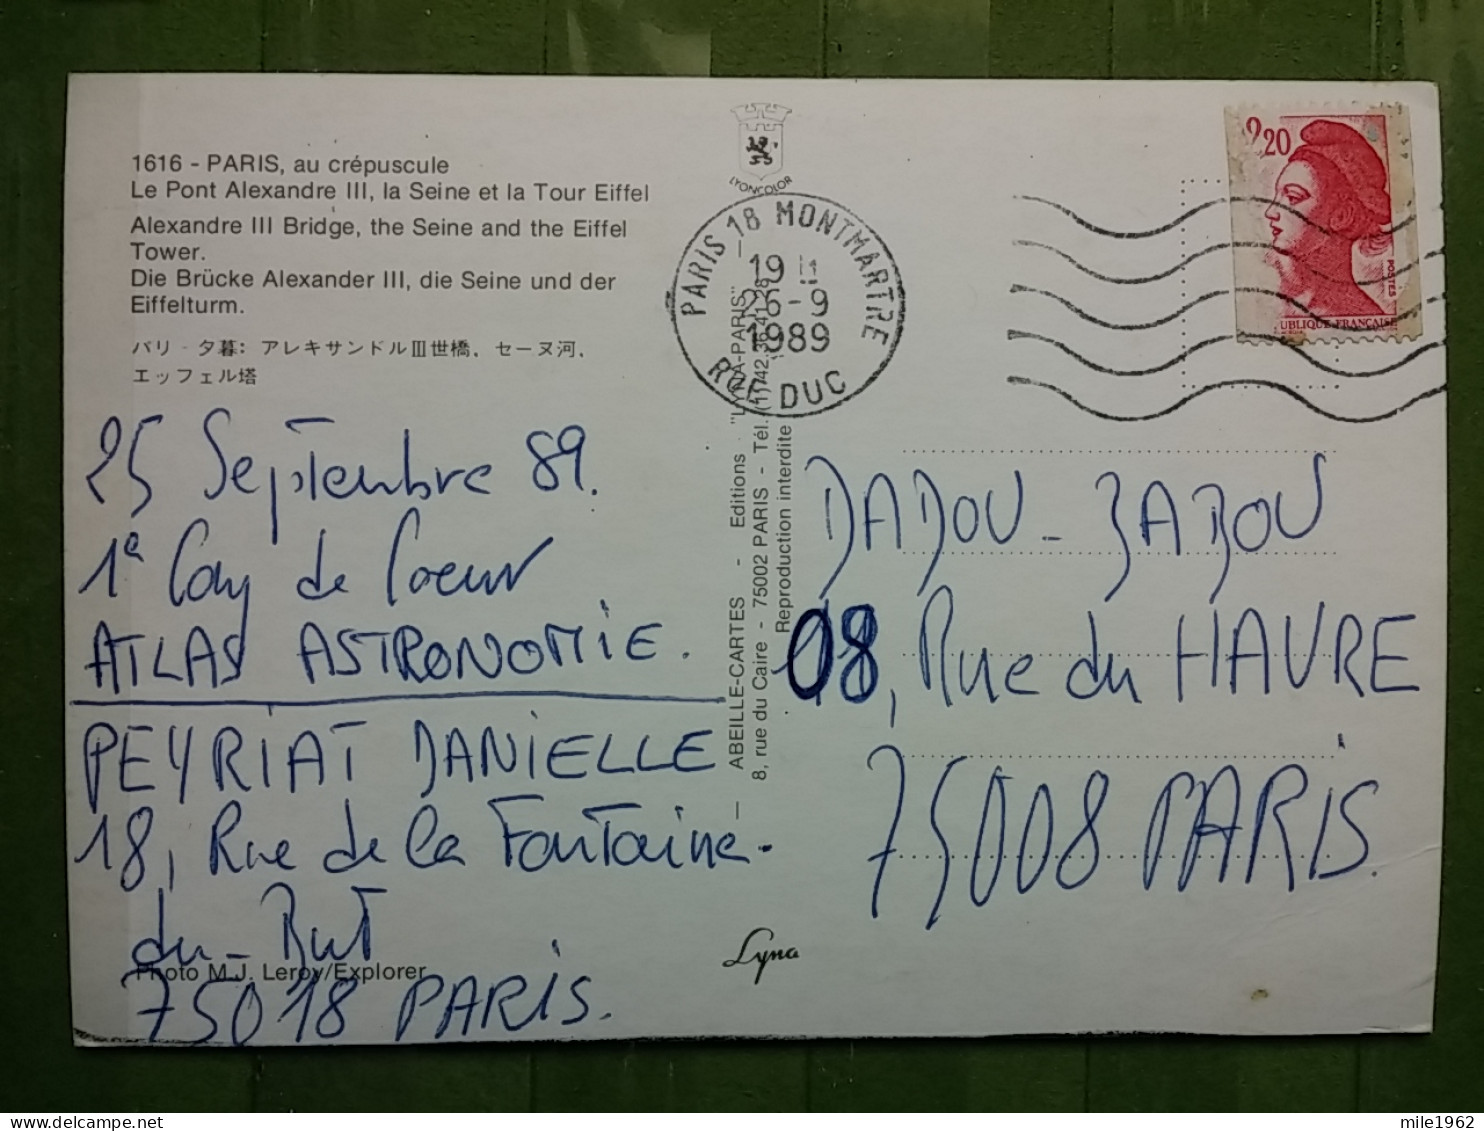 1616 - PARIS, au crépuscule
Le Pont Alexandre III, la Seine et la Tour Eiffel
Alexandre III Bridge, the Seine and the Eiffel
Tower.
Die Brücke Alexander III, die Seine und der
Eiffelturm.
パリ - 夕暮: アレキサンドルⅢ世橋、セーヌ河、
エッフェル塔
25 Septembre 89.
1e Coup de Coeur
ATLAS ASTRONOMIE.
PEYRIAT DANIELLE
18, Rue de la Fontaine.
du-But
Photo M.J. Leroy/Explorer
75018 PARIS.
LYONCOLOR
PARIS 18 MONTMARTRE
19 H
26-9
1989
RUE DUC
ABEILLE-CARTES - Editions "LYNA-PARIS" -
8, rue du Caire - 75002 PARIS - Tél. (1) 42.36.41.28
Reproduction interdite
Lyna
2,20
POSTES
UBLIQUE FRANÇAISE
DADOU-BABOU
08, Rue du HAVRE
75008 PARIS.
mile1962